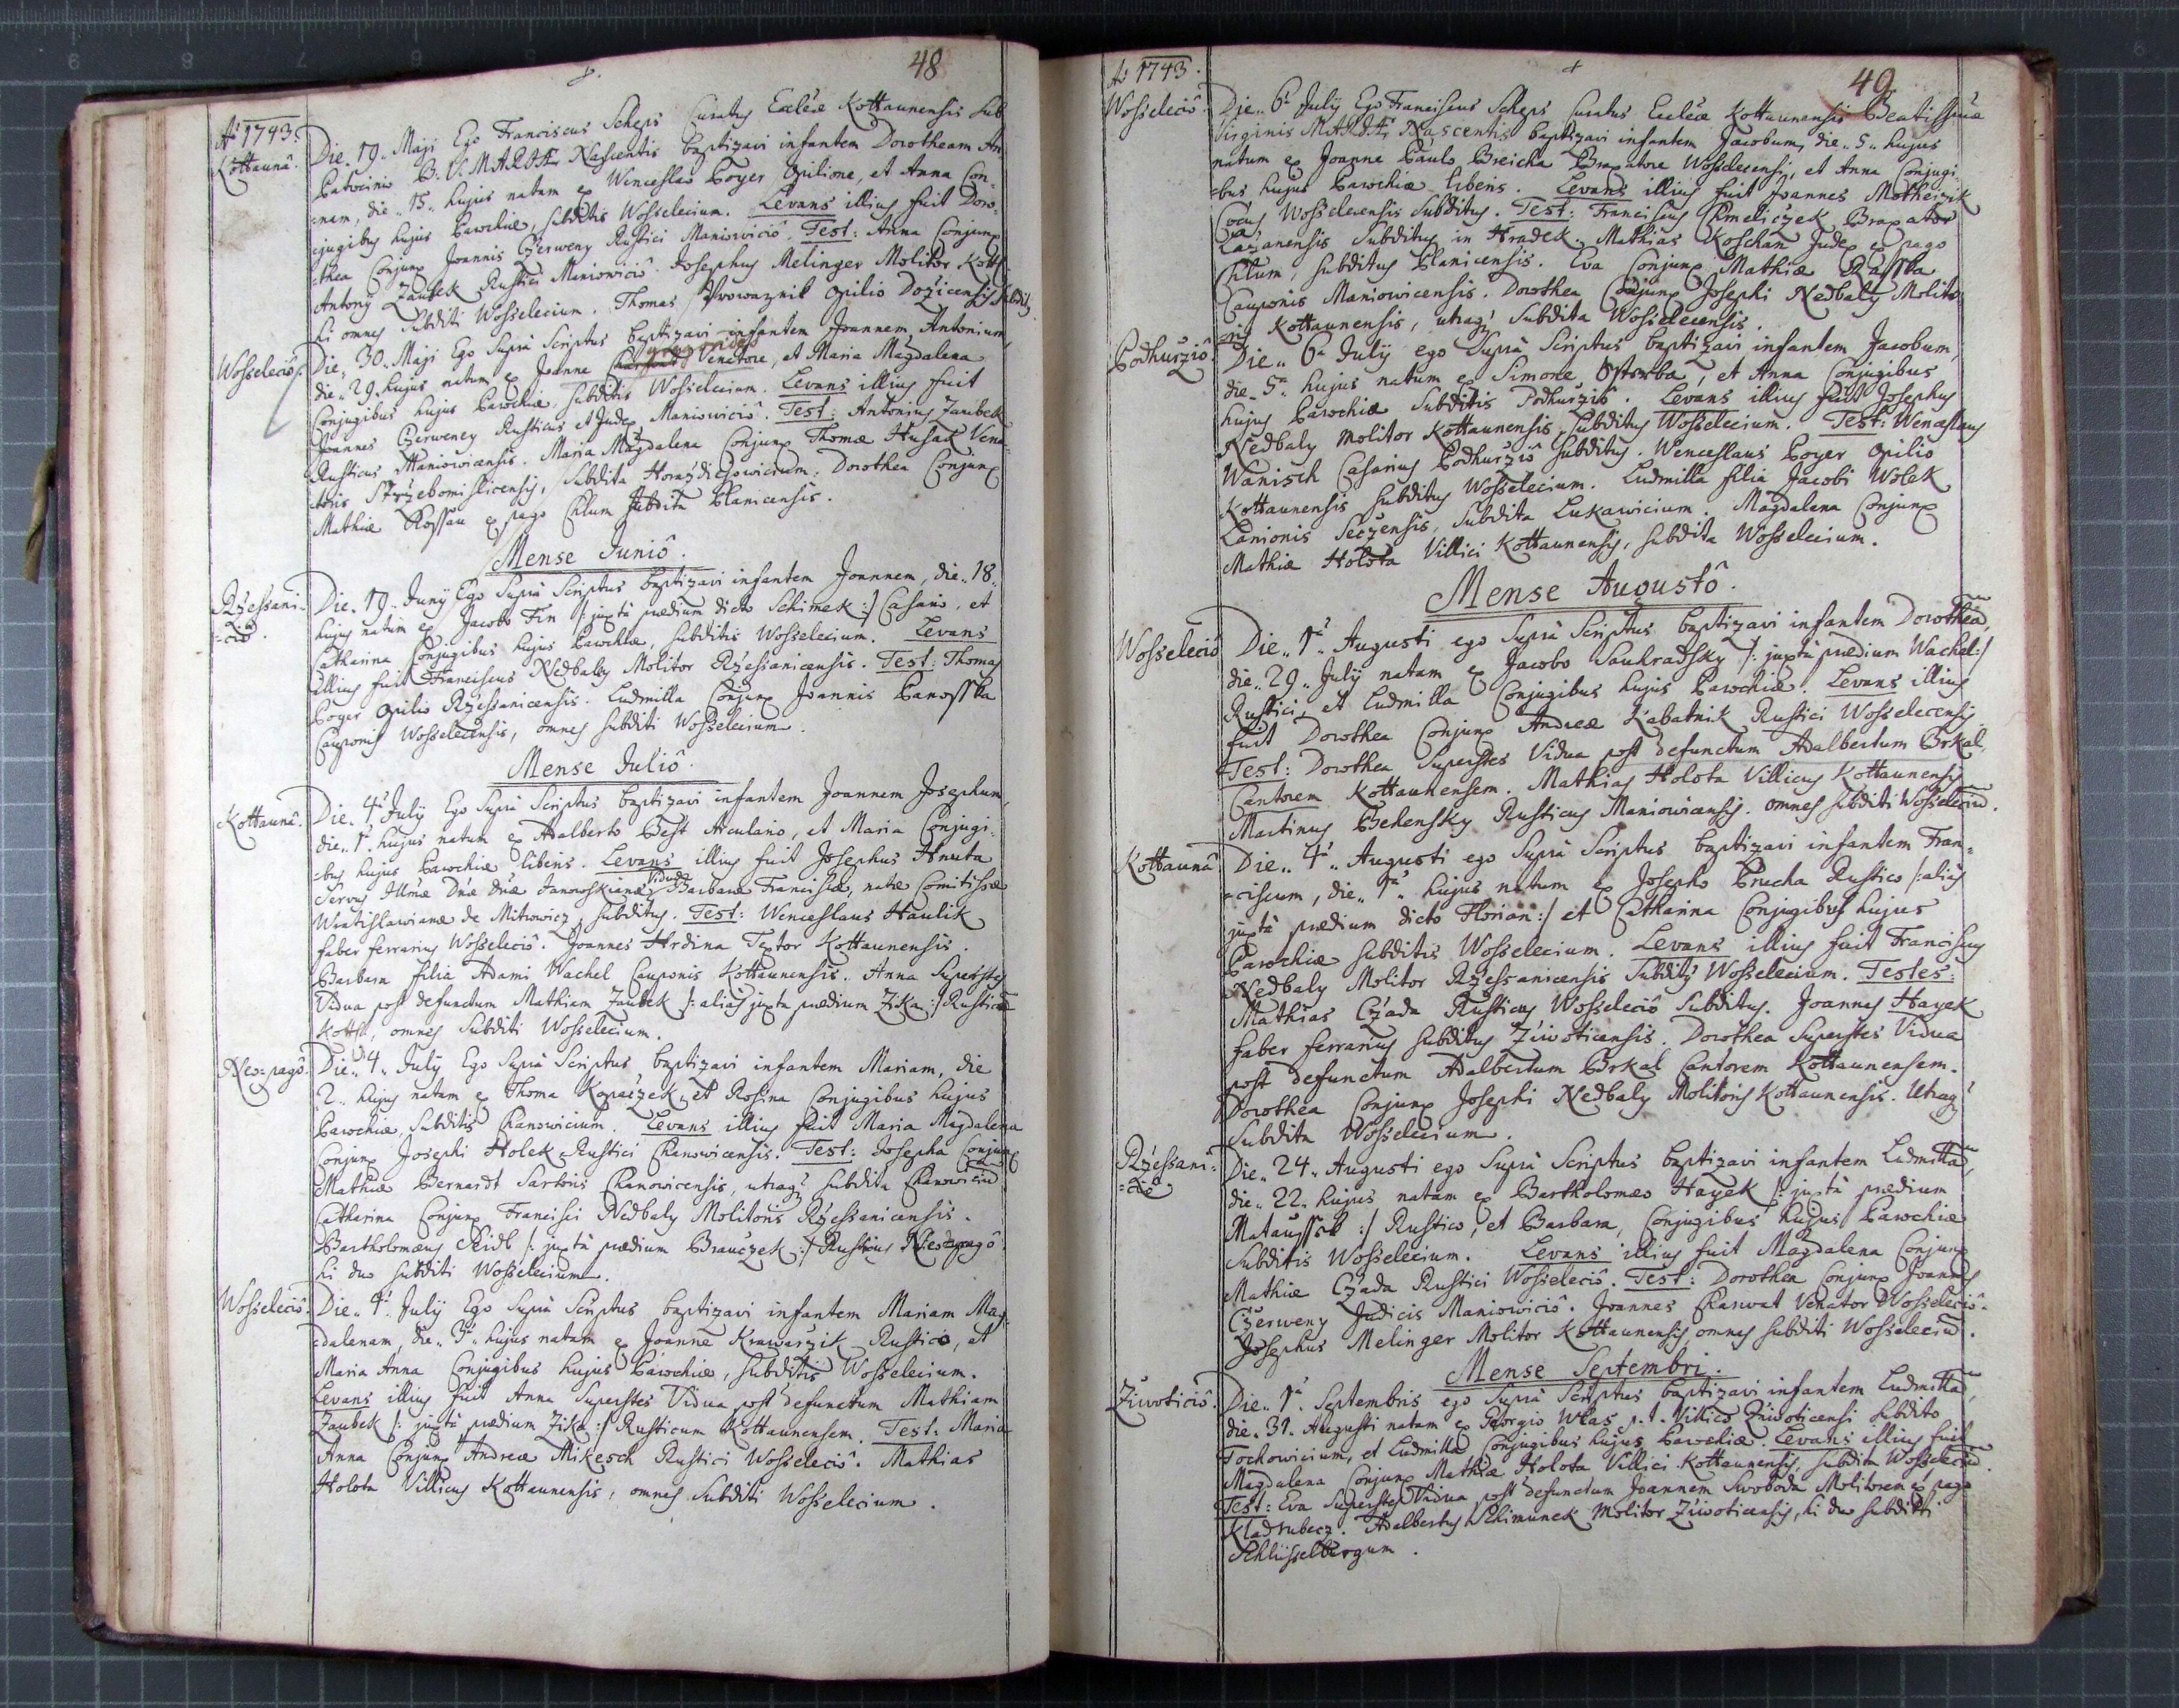 48
Aº 1743.
Kottaunâ.
Die 19. Maji Ego Franciscus Scheps Curatus Eccl̄iæ Kottaunensis Sub
Patrocinio B. V. MARIÆ Nascentis baptizavi infantem Dorotheam An-
-nam, die 15. hujus natam ex Wenceslao Poyer Opilione, et Anna Con-
-jugibus hujus Parochiæ, subditis Wosselecium. Levans illius fuit Doro-
-thea Conjunx Joannis Czerweny Rustici Maniowiciô. Test: Anna Conjunx
Antonij Zaubek Rustici Maniowiciô. Josephus Melinger Molitor Kott:
hi omnes subditi Wosselecium. Thomas Opilio Dozicensis subditus
Wosseleciô.
Die 30. Maji Ego Supra Scriptus baptizavi infantem Joannem Antonium,
die 29. hujus natum ex Joanne Venatore, et Maria Magdalena
Conjugibus hujus Parochiæ, subditis Wosselecium. Levans illius fuit
Joannes Czerweney Rusticus et Judex Maniowiciô. Test: Antonius Zaubek
Rusticus Maniowicensis. Maria Magdalena Conjunx Thomæ Husak Vena-
-toris Strzebomislicensis, subdita Horazdiegowicium. Dorothea Conjunx
Mathiæ Kossan ex pago Chlum subdita Planicensis.
Mense Juniô.
Rzessani-
-ciô.
Die 19. Junij Ego Supra Scriptus baptizavi infantem Joannem, die 18.
hujus natum ex Jacobo Fin /: juxta prædium dicto Schimek :/ Casario, et
Catharina Conjugibus hujus Parochiæ, subditis Wosselecium. Levans
illius fuit Franciscus Nedbaly Molitor Rzessanicensis. Test: Thomas
Poyer Opilio Rzessanicensis. Ludmilla Conjunx Joannis Panosska
Cauponis Wosselecensis, omnes subditi Wosselecium.
Mense Juliô.
Kottaunâ.
Die 4. July Ego Supra Scriptus baptizavi infantem Joannem Josephum,
die 1. hujus natum ex Adalberto Best Arculario, et Maria Conjugi-
-bus hujus Parochiæ liberis. Levans illius fuit Josephus Hnuta
Servus Illmæ Dnæ Dnæ Janowskianæ Viduæ Barbaræ Franciscæ, natæ Comitissæ
Wratislawianæ de Mitrowicz, subditus. Test: Wenceslaus Haulik
faber ferrarius Wosseleciô. Joannes Hrdina Textor Kottaunensis.
Barbara filia Adami Wachel Cauponis Kottaunensis. Anna Superstes
Vidua post defunctum Mathiam Zaubek /: alias juxta prædium Zika :/ Rusticum
Kott:, omnes subditi Wosselecium.
Neo-pagô.
Die 4. July Ego Supra Scriptus baptizavi infantem Mariam, die
2. hujus natam ex Thoma Kopaczek, et Rosina Conjugibus hujus
Parochiæ, subditis Chanowicium. Levans illius fuit Maria Magdalena
Conjunx Josephi Holek Rustici Chanowicensis. Test: Josepha Conjunx
Mathiæ Bernardt Sartoris Chanowicensis, utraq; subdita Chanowiciū
Catharina Conjunx Francisci Nedbaly Molitoris Rzessanicensis.
Bartholomæus Seidl /: juxta prædium Brauczek :/ Rusticus Neo-pagô.
hi duo subditi Wosselecium.
Wosseleciô.
Die 4. July Ego Supra Scriptus baptizavi infantem Mariam Mag-
-dalenam, die 3. hujus natam ex Joanne Krawarzik Rustico, et
Maria Anna Conjugibus hujus Parochiæ, subditis Wosselecium.
Levans illius fuit Anna Superstes Vidua post defunctum Mathiam
Zaubek /: juxta prædium Zika :/ Rusticum Kottaunensem. Test: Maria
Anna Conjunx Andreæ Mikesch Rustici Wosseleciô. Mathias
Holota Villicus Kottaunensis, omnes subditi Wosselecium.
49
Aº 1743.
Wosseleciô.
Die 6. July Ego Franciscus Scheps Curatus Eccl̄iæ Kottaunensis Beatissimæ
Virginis MARIÆ Nascentis baptizavi infantem Jacobum, die 5. hujus
natum ex Joanne Paulo Breicha Braxatore Wosselecensi, et Anna Conjugi-
-bus hujus Parochiæ liberis. Levans illius fuit Joannes Motheizik
Cocus Wosselecensis subditus. Test: Franciscus Chmeliczek Braxator
Lazanensis subditus in Hradek. Mathias Koschan Judex ex pago
Chlum, subditus Planicensis. Eva Conjunx Mathiæ
Cauponis Maniowicensis. Dorothea Conjunx Josephi Nedbaly Molito-
-ris Kottaunensis, utraq; subdita Wosselecensis.
Podhurziô.
Die 6. July ego Supra Scriptus baptizavi infantem Jacobum,
die 5. hujus natum ex Simone Ostrba, et Anna Conjugibus
hujus Parochiæ subditis Podhurziô. Levans illius fuit Josephus
Nedbaly Molitor Kottaunensis, subditus Wosselecium. Test: Wenceslaus
Wanisch Casarius Podhurziô subditus. Wenceslaus Poyer Opilio
Kottaunensis subditus Wosselecium. Ludmilla filia Jacobi Wolek
Lanionis Seczensis, subdita Lukawicium. Magdalena Conjunx
Mathiæ Holota Villici Kottaunensis, subdita Wosselecium.
Mense Augustô.
Wosseleciô
Die 1. Augusti ego Supra Scriptus baptizavi infantem Dorotheā,
die 29. July natam ex Jacobo Saukradsky /: juxta prædium Wachel :/
Rustici, et Ludmilla Conjugibus hujus Parochiæ. Levans illius
fuit Dorothea Conjunx Andreæ Kabatnik Rustici Wosselecensis.
Test: Dorothea Superstes Vidua post defunctum Adalbertum Brkal
Cantorem Kottaunensem. Mathias Holota Villicus Kottaunensis
Martinus Behensky Rusticus Maniowicensis. omnes subditi Wosseleciū.
Kottaunâ
Die 4. Augusti ego Supra Scriptus baptizavi infantem Fran-
-ciscum, die 1. hujus natum ex Josepho Prucha Rustico /: alias
juxta prædium dicto Florian :/ et Catharina Conjugibus hujus
Parochiæ subditis Wosselecium. Levans illius fuit Franciscus
Nedbaly Molitor Rzessanicensis subditus Wosselecium. Testes:
Mathias Czada Rusticus Wosseleciô subditus. Joannes Hayek
faber ferrarius subditus Ziwoticensis. Dorothea Superstes Vidua
post defunctum Adalbertum Brkal Cantorem Kottaunensem.
Dorothea Conjunx Josephi Nedbaly Molitoris Kottaunensis. Utraq;
subdita Wosselecium.
Rzessani-
-ciô.
Die 24. Augusti ego Supra Scriptus baptizavi infantem Ludmillā,
die 22. hujus natam ex Bartholomæo Hayek /: juxta prædium
Mataussek :/ Rustico, et Barbara, Conjugibus hujus Parochiæ
subditis Wosselecium. Levans illius fuit Magdalena Conjunx
Mathiæ Czada Rustici Wosseleciô. Test: Dorothea Conjunx Joannis
Czerweny Judicis Maniowiciô. Joannes Charwat Venator Wosseleciô.
Josephus Melinger Molitor Kottaunensis, omnes subditi Wosseleciū.
Mense Septembri.
Ziwoticiô.
Die 1. Septembris ego Supra Scriptus baptizavi infantem Ludmillā,
die 31. Augusti natam ex Georgio Wlas p. t. Villico Ziwoticensi subdito
Tochowicium, et Ludmilla Conjugibus hujus Parochiæ. Levans illius fuit
Magdalena Conjunx Mathiæ Holota Villici Kottaunensis, subdita Wosseleciū.
Test: Eva Superstes Vidua post defunctum Joannem Swoboda Molitorem ex pago
Kladrubecz. Adalbertus Schimunek Molitor Ziwoticensis, hi duo subditi
Schlüsselburgum.